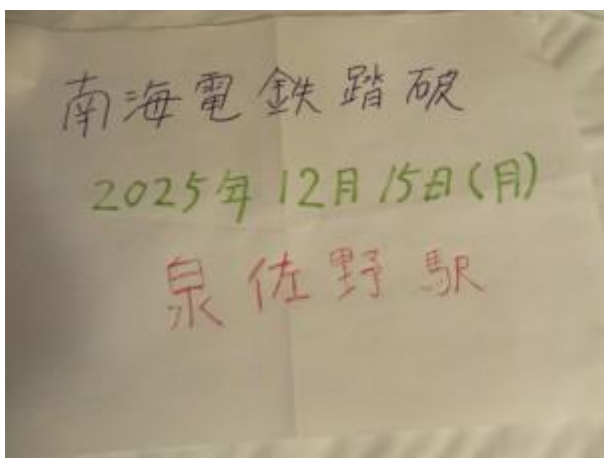 南海電鉄踏破
2025年12月15日(月)
泉佐野駅